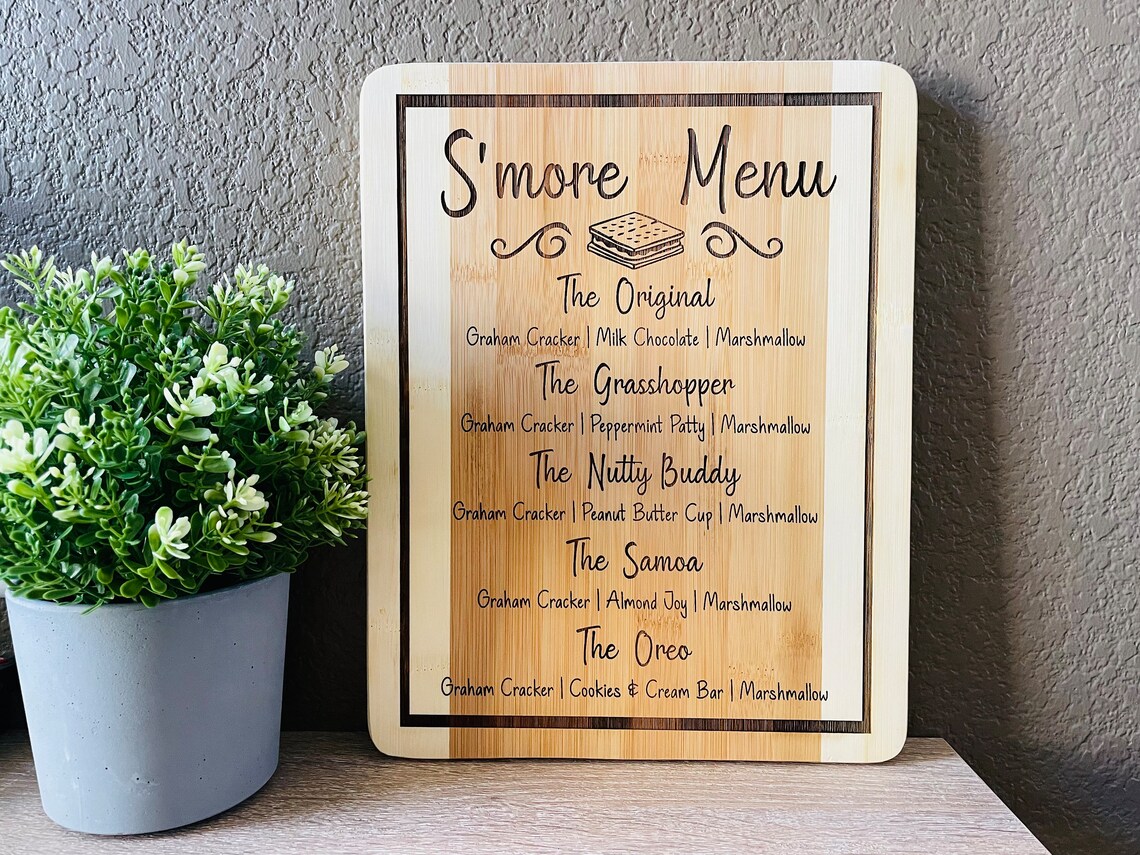 S'more Menu
The Original
Graham Cracker | Milk Chocolate | Marshmallow
The Grasshopper
Graham Cracker | Peppermint Patty | Marshmallow
The Nutty Buddy
Graham Cracker | Peanut Butter Cup | Marshmallow
The Samoa
Graham Cracker | Almond Joy | Marshmallow
The Oreo
Graham Cracker | Cookies & Cream Bar | Marshmallow